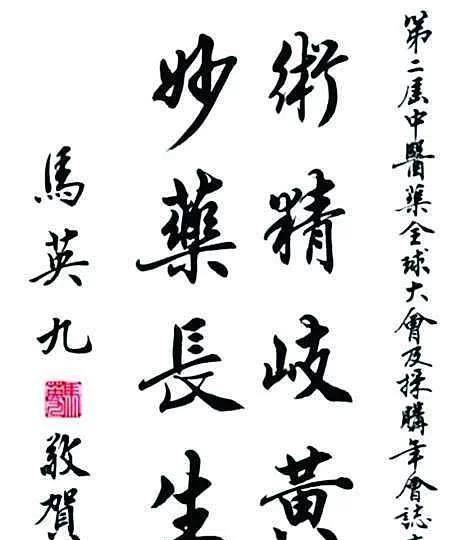 第二屆中醫藥全球大會及採購年會誌
術精岐黃
妙藥長生
馬英九
敬賀